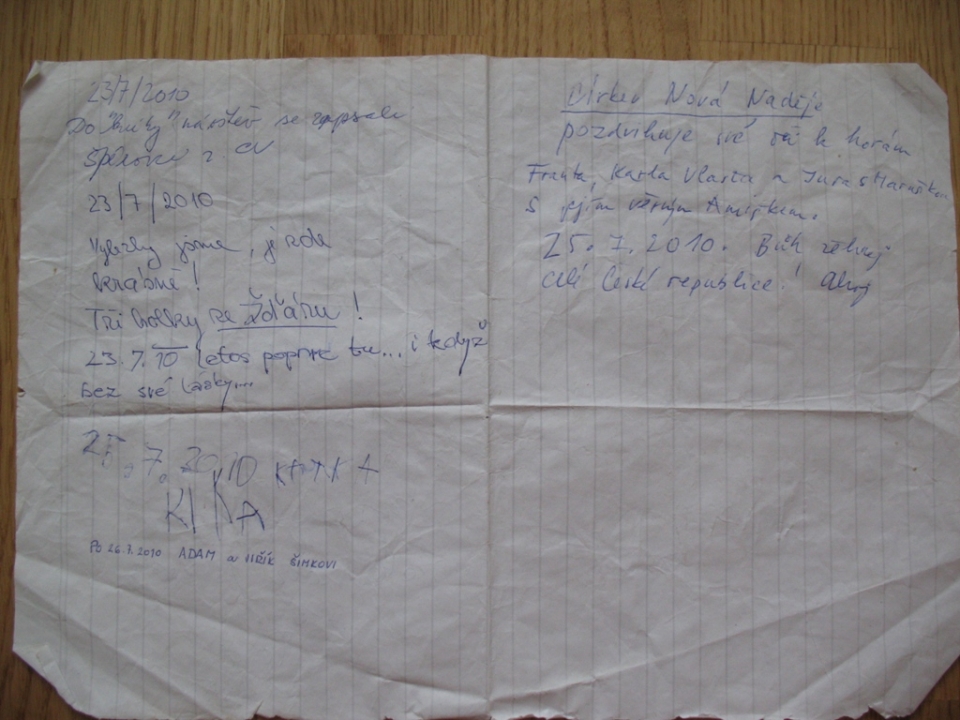 23/7/2010
Do "knihy" návštěv se zapsali
z CV
23/7/2010
jsme, je zde
krásně!
Tři holky ze Žďáru!
23.7.10 letos poprvé tu... i když
bez své lásky...
25.7.2010 KATKA
KIKA
Po 26.7.2010 ADAM a JIŘÍK ŠIMKOVI
Církev Nová Naděje
pozdvihuje své oči k horám
Franta, Karla Vlasta a Jura s
s jejím věrným
25.7.2010. Bůh žehnej
celé České republice! Ahoj